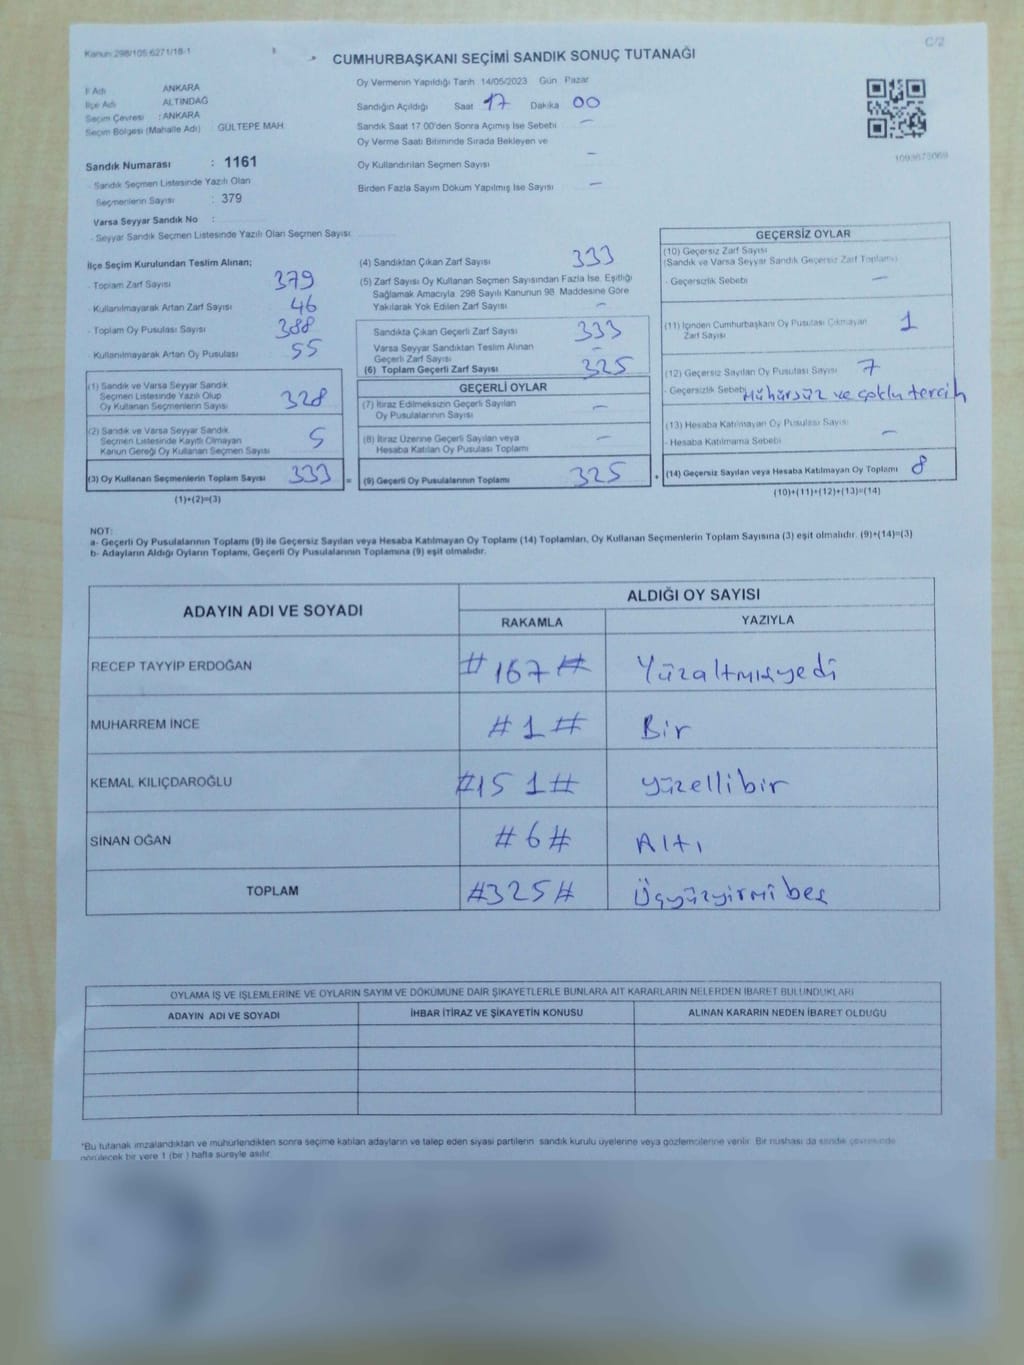 Kanun 298/105 6271/18-1
C/2
CUMHURBAŞKANI SEÇİMİ SANDIK SONUÇ TUTANAĞI
İl Adı ANKARA
İlçe Adı ALTINDAĞ
Seçim Çevresi : ANKARA
Seçim Bölgesi (Mahalle Adı) GÜLTEPE MAH.
Sandık Numarası : 1161
- Sandık Seçmen Listesinde Yazılı Olan
Seçmenlerin Sayısı : 379
Varsa Seyyar Sandık No :
- Seyyar Sandık Seçmen Listesinde Yazılı Olan Seçmen Sayısı
Oy Vermenin Yapıldığı Tarih 14/05/2023 Gün Pazar
Sandığın Açıldığı Saat 17 Dakika 00
Sandık Saat 17.00'den Sonra Açılmış İse Sebebi –
Oy Verme Saati Bitiminde Sırada Bekleyen ve
Oy Kullandırılan Seçmen Sayısı –
Birden Fazla Sayım Döküm Yapılmış İse Sayısı –
İlçe Seçim Kurulundan Teslim Alınan;
- Toplam Zarf Sayısı 379
- Kullanılmayarak Artan Zarf Sayısı 46
- Toplam Oy Pusulası Sayısı 388
- Kullanılmayarak Artan Oy Pusulası 55
(1) Sandık ve Varsa Seyyar Sandık
Seçmen Listesinde Yazılı Olup
Oy Kullanan Seçmenlerin Sayısı 328
(2) Sandık ve Varsa Seyyar Sandık
Seçmen Listesinde Kayıtlı Olmayan
Kanun Gereği Oy Kullanan Seçmen Sayısı 5
(3) Oy Kullanan Seçmenlerin Toplam Sayısı 333 =
(1)+(2)=(3)
(4) Sandıktan Çıkan Zarf Sayısı 333
(5) Zarf Sayısı Oy Kullanan Seçmen Sayısından Fazla İse, Eşitliği
Sağlamak Amacıyla 298 Sayılı Kanunun 98. Maddesine Göre
Yakılarak Yok Edilen Zarf Sayısı –
Sandıkta Çıkan Geçerli Zarf Sayısı 333
Varsa Seyyar Sandıktan Teslim Alınan
Geçerli Zarf Sayısı –
(6) Toplam Geçerli Zarf Sayısı 325
GEÇERLİ OYLAR
(7) İtiraz Edilmeksizin Geçerli Sayılan
Oy Pusulalarının Sayısı –
(8) İtiraz Üzerine Geçerli Sayılan veya
Hesaba Katılan Oy Pusulası Toplamı –
(9) Geçerli Oy Pusulalarının Toplamı 325 +
GEÇERSİZ OYLAR
(10) Geçersiz Zarf Sayısı
(Sandık ve Varsa Seyyar Sandık Geçersiz Zarf Toplamı)
- Geçersizlik Sebebi –
(11) İçinden Cumhurbaşkanı Oy Pusulası Çıkmayan
Zarf Sayısı 1
(12) Geçersiz Sayılan Oy Pusulası Sayısı 7
- Geçersizlik Sebebi Mühürsüz ve çoklu tercih
(13) Hesaba Katılmayan Oy Pusulası Sayısı
- Hesaba Katılmama Sebebi –
(14) Geçersiz Sayılan veya Hesaba Katılmayan Oy Toplamı 8
(10)+(11)+(12)+(13)=(14)
NOT:
a- Geçerli Oy Pusulalarının Toplamı (9) ile Geçersiz Sayılan veya Hesaba Katılmayan Oy Toplamı (14) Toplamları, Oy Kullanan Seçmenlerin Toplam Sayısına (3) eşit olmalıdır. (9)+(14)=(3)
b- Adayların Aldığı Oyların Toplamı, Geçerli Oy Pusulalarının Toplamına (9) eşit olmalıdır.
ADAYIN ADI VE SOYADI ALDIĞI OY SAYISI
RAKAMLA YAZIYLA
RECEP TAYYİP ERDOĞAN #167# Yüzaltmışyedi
MUHARREM İNCE #1# Bir
KEMAL KILIÇDAROĞLU #151# yüzellibir
SİNAN OĞAN #6# Altı
TOPLAM #325# Üçyüzyirmibeş
OYLAMA İŞ VE İŞLEMLERİNE VE OYLARIN SAYIM VE DÖKÜMÜNE DAİR ŞİKAYETLERLE BUNLARA AİT KARARLARIN NELERDEN İBARET BULUNDUKLARI
ADAYIN ADI VE SOYADI İHBAR İTİRAZ VE ŞİKAYETİN KONUSU ALINAN KARARIN NEDEN İBARET OLDUĞU
*Bu tutanak imzalandıktan ve mühürlendikten sonra seçime katılan adayların ve talep eden siyasi partilerin sandık kurulu üyelerine veya gözlemcilerine verilir. Bir nüshası da sandık çevresinde
görülecek bir yere 1 (bir) hafta süreyle asılır.